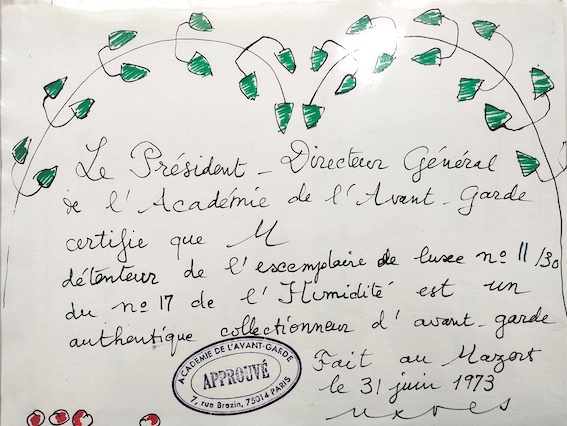 Le Président-Directeur Général
de l'Académie de l'Avant-Garde
certifie que M
détenteur de l'exemplaire de luxe nº 11/30
du nº 17 de l'Humidité est un
authentique collectionneur d'avant-garde
Fait au Mazort
le 31 juin 1973
ACADEMIE DE L'AVANT-GAEDE
APPROUVÉ
7, rue Brezin, 75014 PARIS